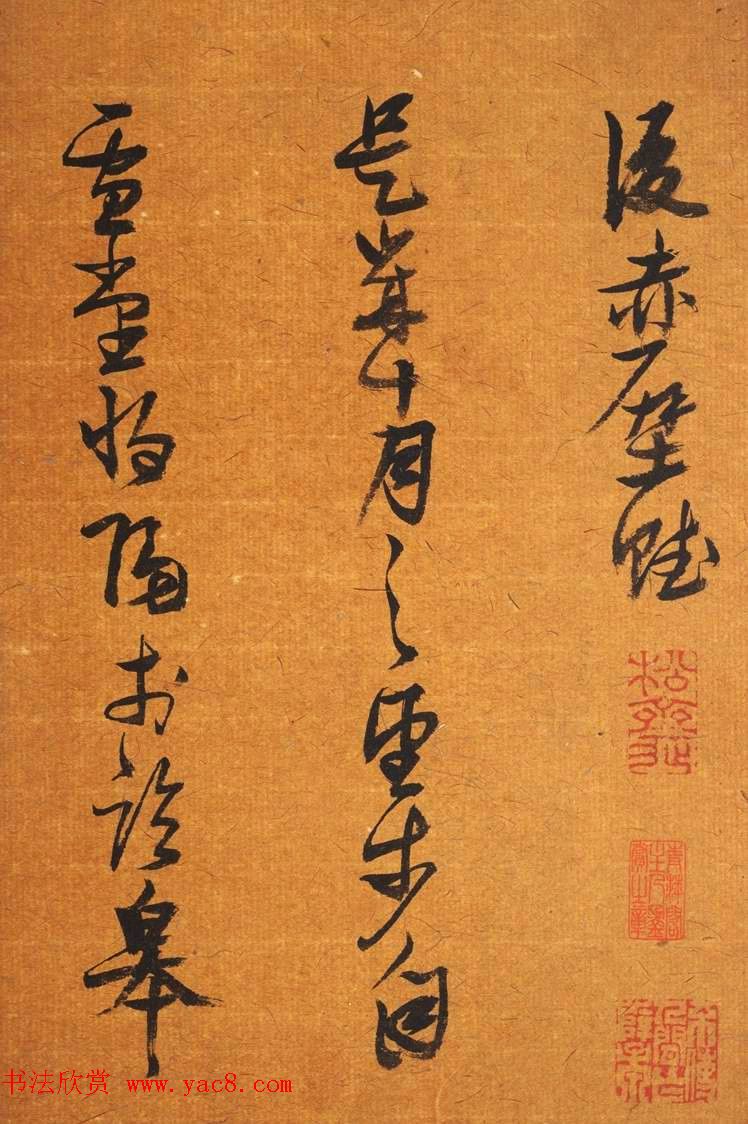 後赤壁賦
是歲十月之望步自
雪堂將歸于臨皋
书法欣赏 www.yac8.com